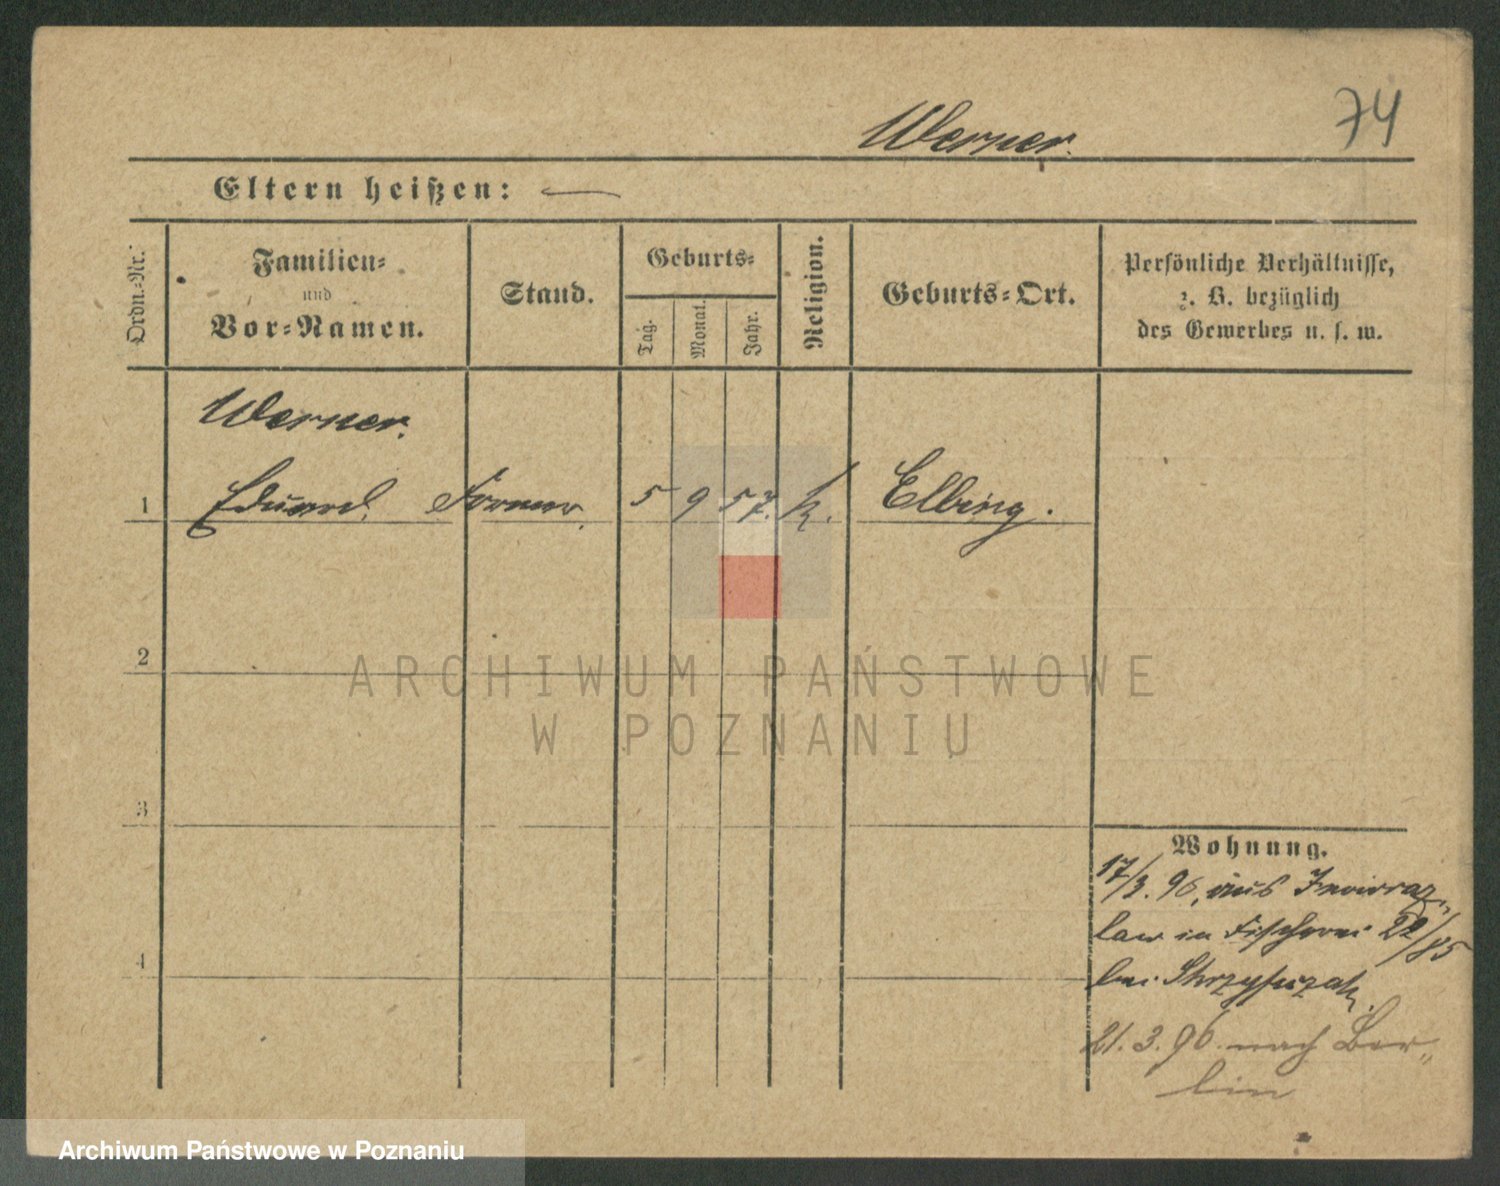 74
Werner.
Eltern heißen: —
Ordn.-Nr.
Familien-
und
Vor-Namen.
Stand.
Geburts-
Tag.
Monat.
Jahr.
Religion.
Geburts-Ort.
Persönliche Verhältnisse,
z. B. bezüglich
des Gewerbes u. s. w.
Werner.
1 Eduard. Former. 5 9 57. k. Elbing.
2
ARCHIWUM PAŃSTWOWE
W POZNANIU
3
Wohnung.
17/3. 96, aus Inowraz-
law in Fischerei 22/85
4
bei
21. 3. 96. nach Ber-
lin
Archiwum Państwowe w Poznaniu